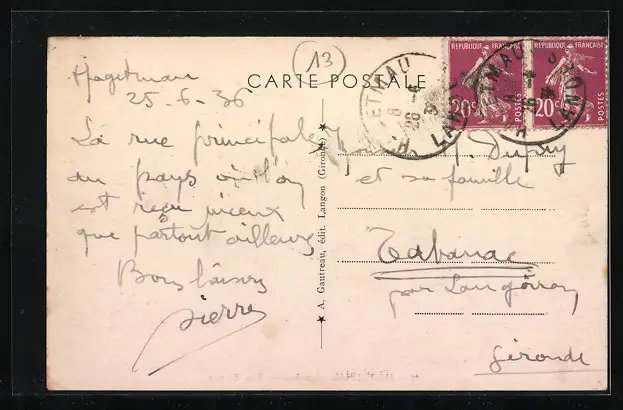 Hagetmau
25-6-36
13
CARTE POSTALE
La rue principale
du pays où l'on
est reçu mieux
que partout ailleurs
Bons baisers
Pierre
★ A. Gautreau, édit. Langon (Gironde) ★
REPUBLIQUE FRANÇAISE
20c
POSTES
REPUBLIQUE FRANÇAISE
20c
POSTES
Dupuy
et sa famille
Tabanac
par Langoiran
Gironde